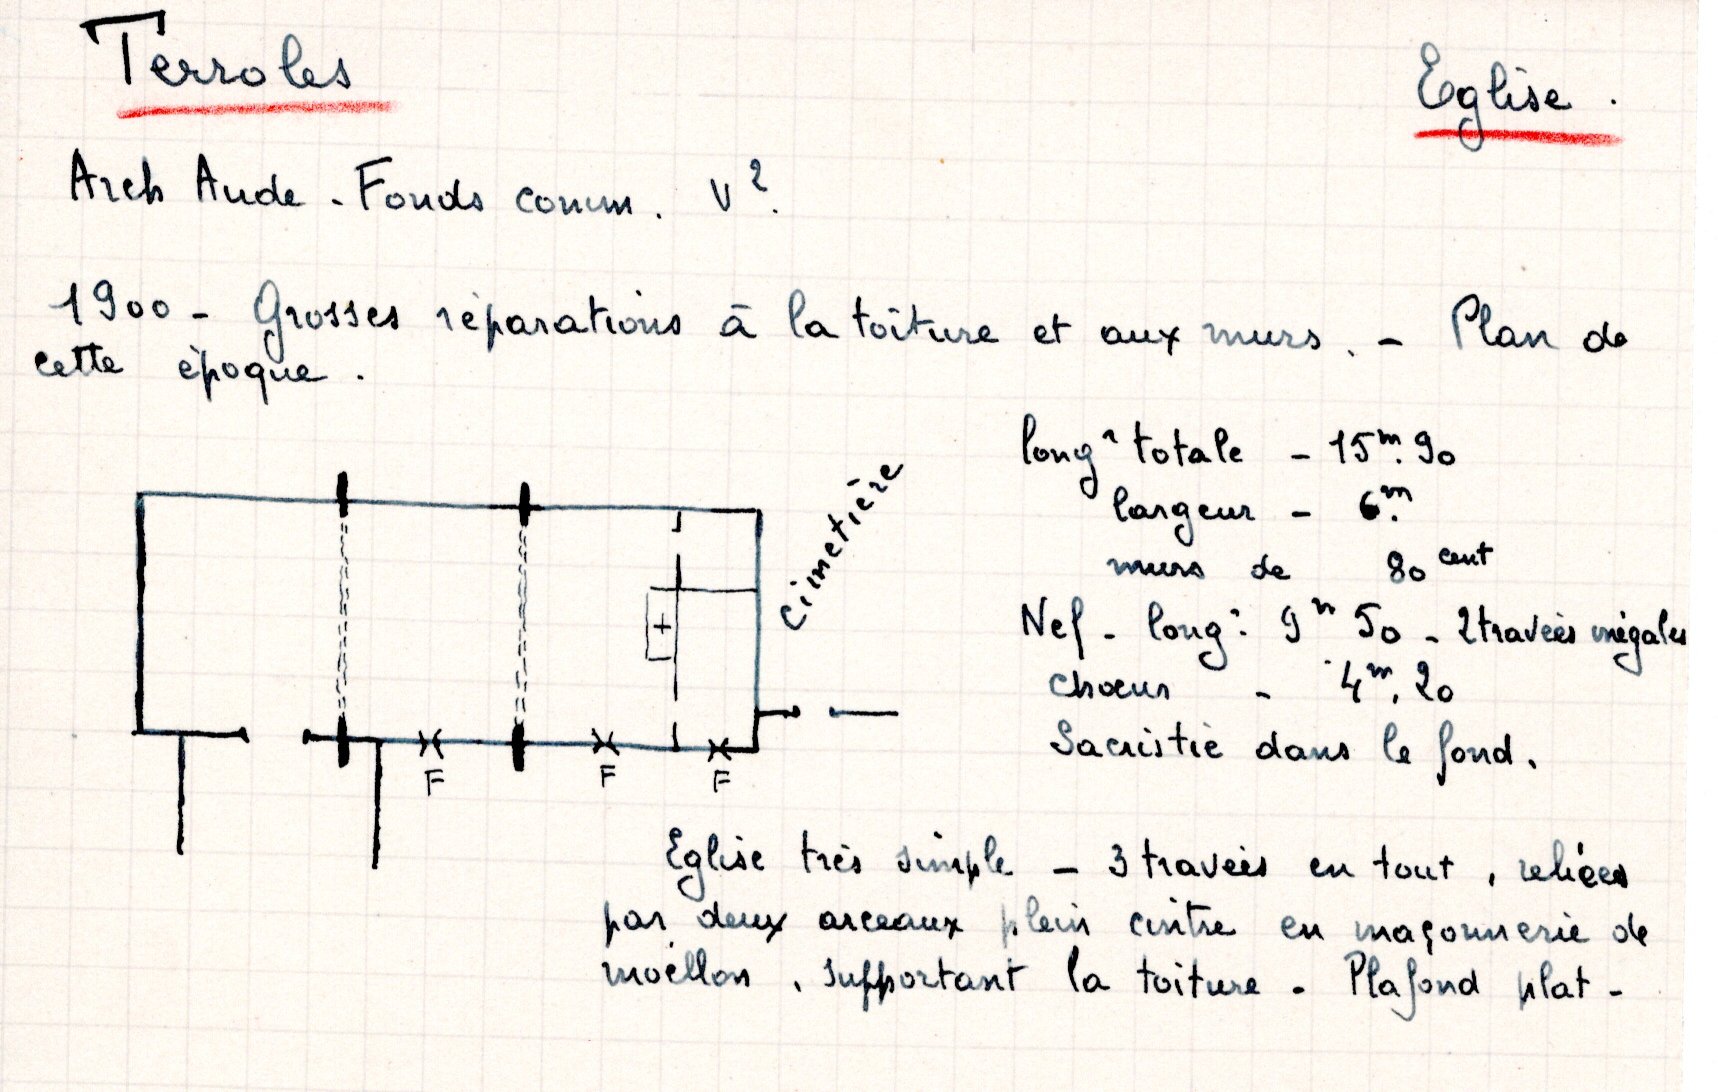 Terroles
Eglise.
Arch Aude - Fonds comm. V².
1900 - Grosses réparations à la toiture et aux murs. - Plan de
cette époque.
longʳ totale - 15ᵐ.90
largeur - 6ᵐ.
murs de 80 cent
Nef - longʳ: 9ᵐ 50 - 2 travées inégales
choeur - 4ᵐ.20
Sacristie dans le fond.
Cimetière
+
F F F
Eglise très simple - 3 travées en tout, reliées
par deux arceaux plein cintre en maçonnerie de
moëllon, supportant la toiture - Plafond plat -